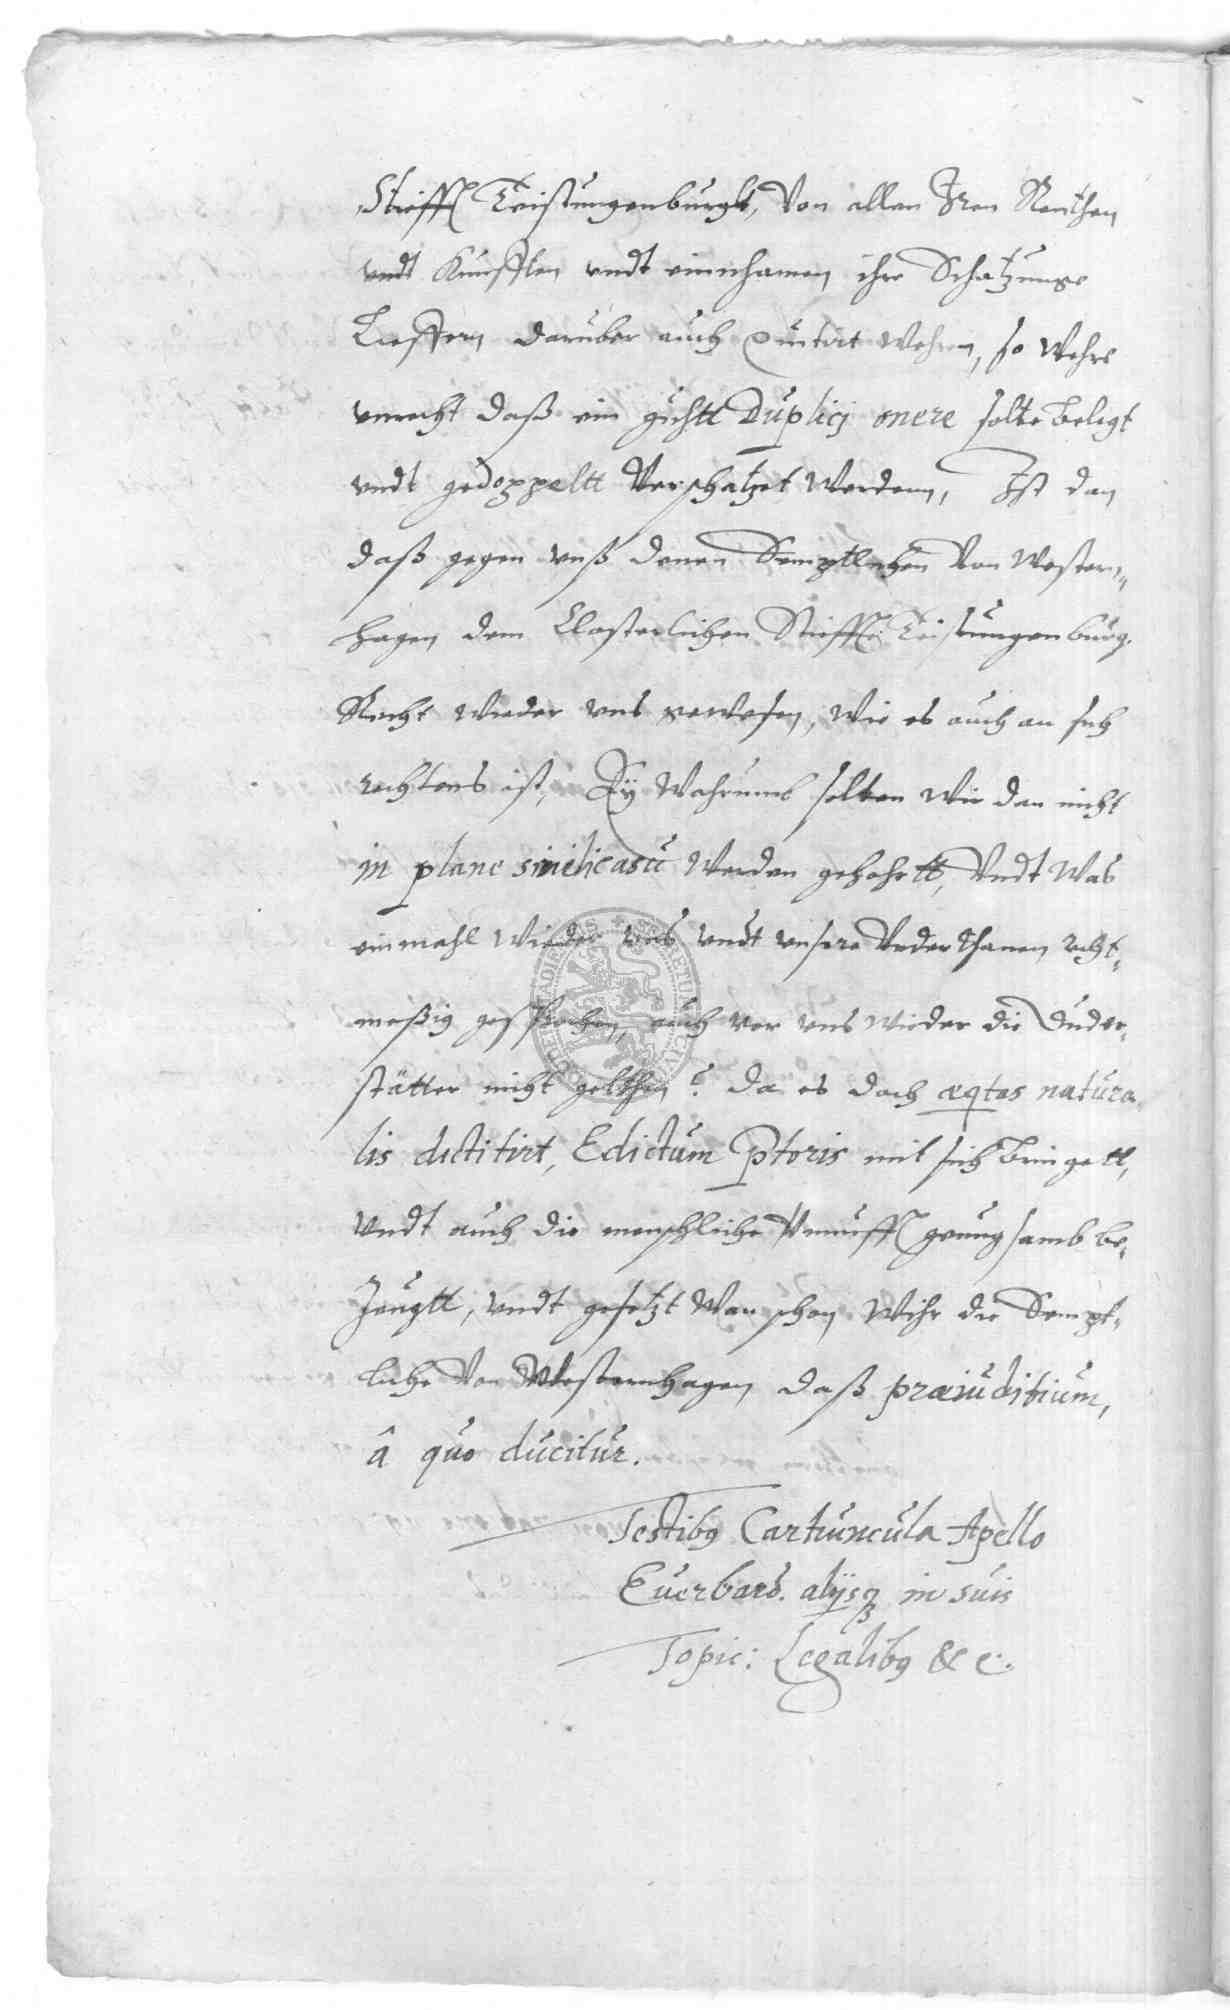 Stiefft Teistungenburgk, Von allen Jren Renthen
vndt Künfften vndt einnhamen ihre Schatzunge
Lieffern darüber auch quitirt wehren, so wehre
vnrecht daß ein guhtt Duplicj onere solte belegt
vndt gedoppeltt Verschatzet Werdenn, Ist dan
daß gegen vnß denen Semptlichen Von Western,
hagen dem Closterlichen Stiefft Teistungenburg.
Recht wieder vns gewesen, Wie es auch an sich
rechtens ist, Ey Wahrumb solten Wir dan nicht
in plane simili casu Werden gehohrtt, Vndt Was
einmahl Wieder vns vndt vnsere Vnderthanen recht,
meßig gesprochen, auch vor vns wieder die Duder,
stätter nicht gelthen? da es doch æqtas natura
lis dictitirt, Edictum Ptoris mit sich bringett,
Vndt auch die menschliche Vernunfft genungsamb be,
Zeugtt, vndt gesetzt Wan schon Wihr die Sempt,
liche Von Westernhagen daß præiuditium,
â quo ducitur.
Testibq Cartiuncula Apello
Euerhard. alijsq in suis
Topic: Legalibq & c.